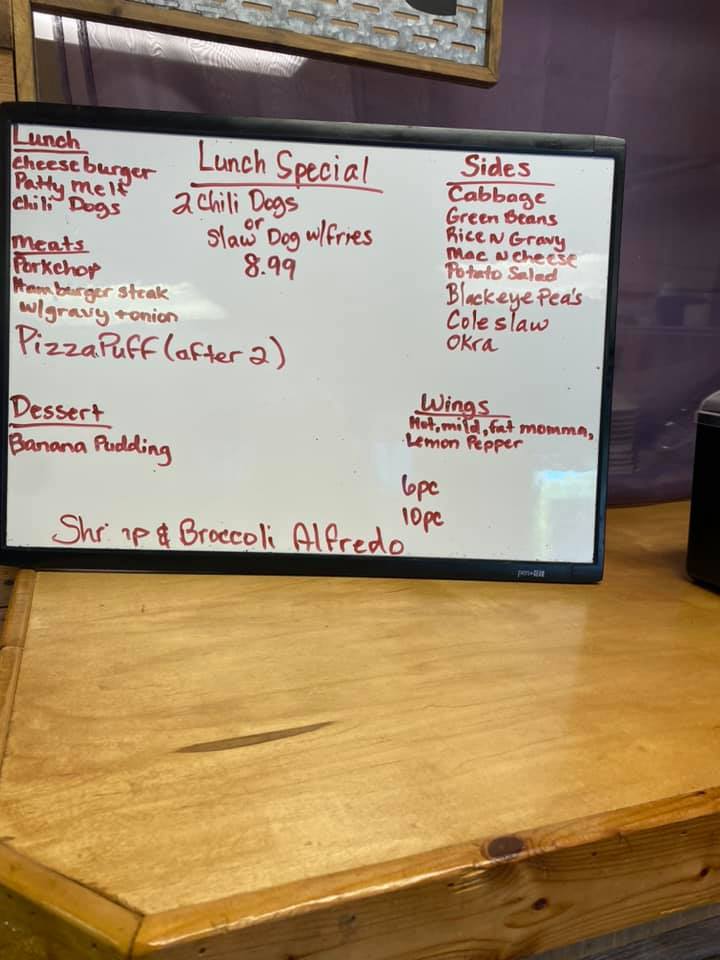 Lunch
cheeseburger
Patty melt
chili Dogs
Meats
Porkchop
Hamburger steak
w/gravy + onion
PizzaPuff (after 2)
Dessert
Banana Pudding
Lunch Special
2 chili Dogs
or
Slaw Dog w/fries
8.99
Sides
Cabbage
Green Beans
Rice N Gravy
Mac N cheese
Potato Salad
Blackeye Pea's
Coleslaw
Okra
Wings
Hot, mild, fat momma,
Lemon Pepper
6pc
10pc
& Broccoli Alfredo